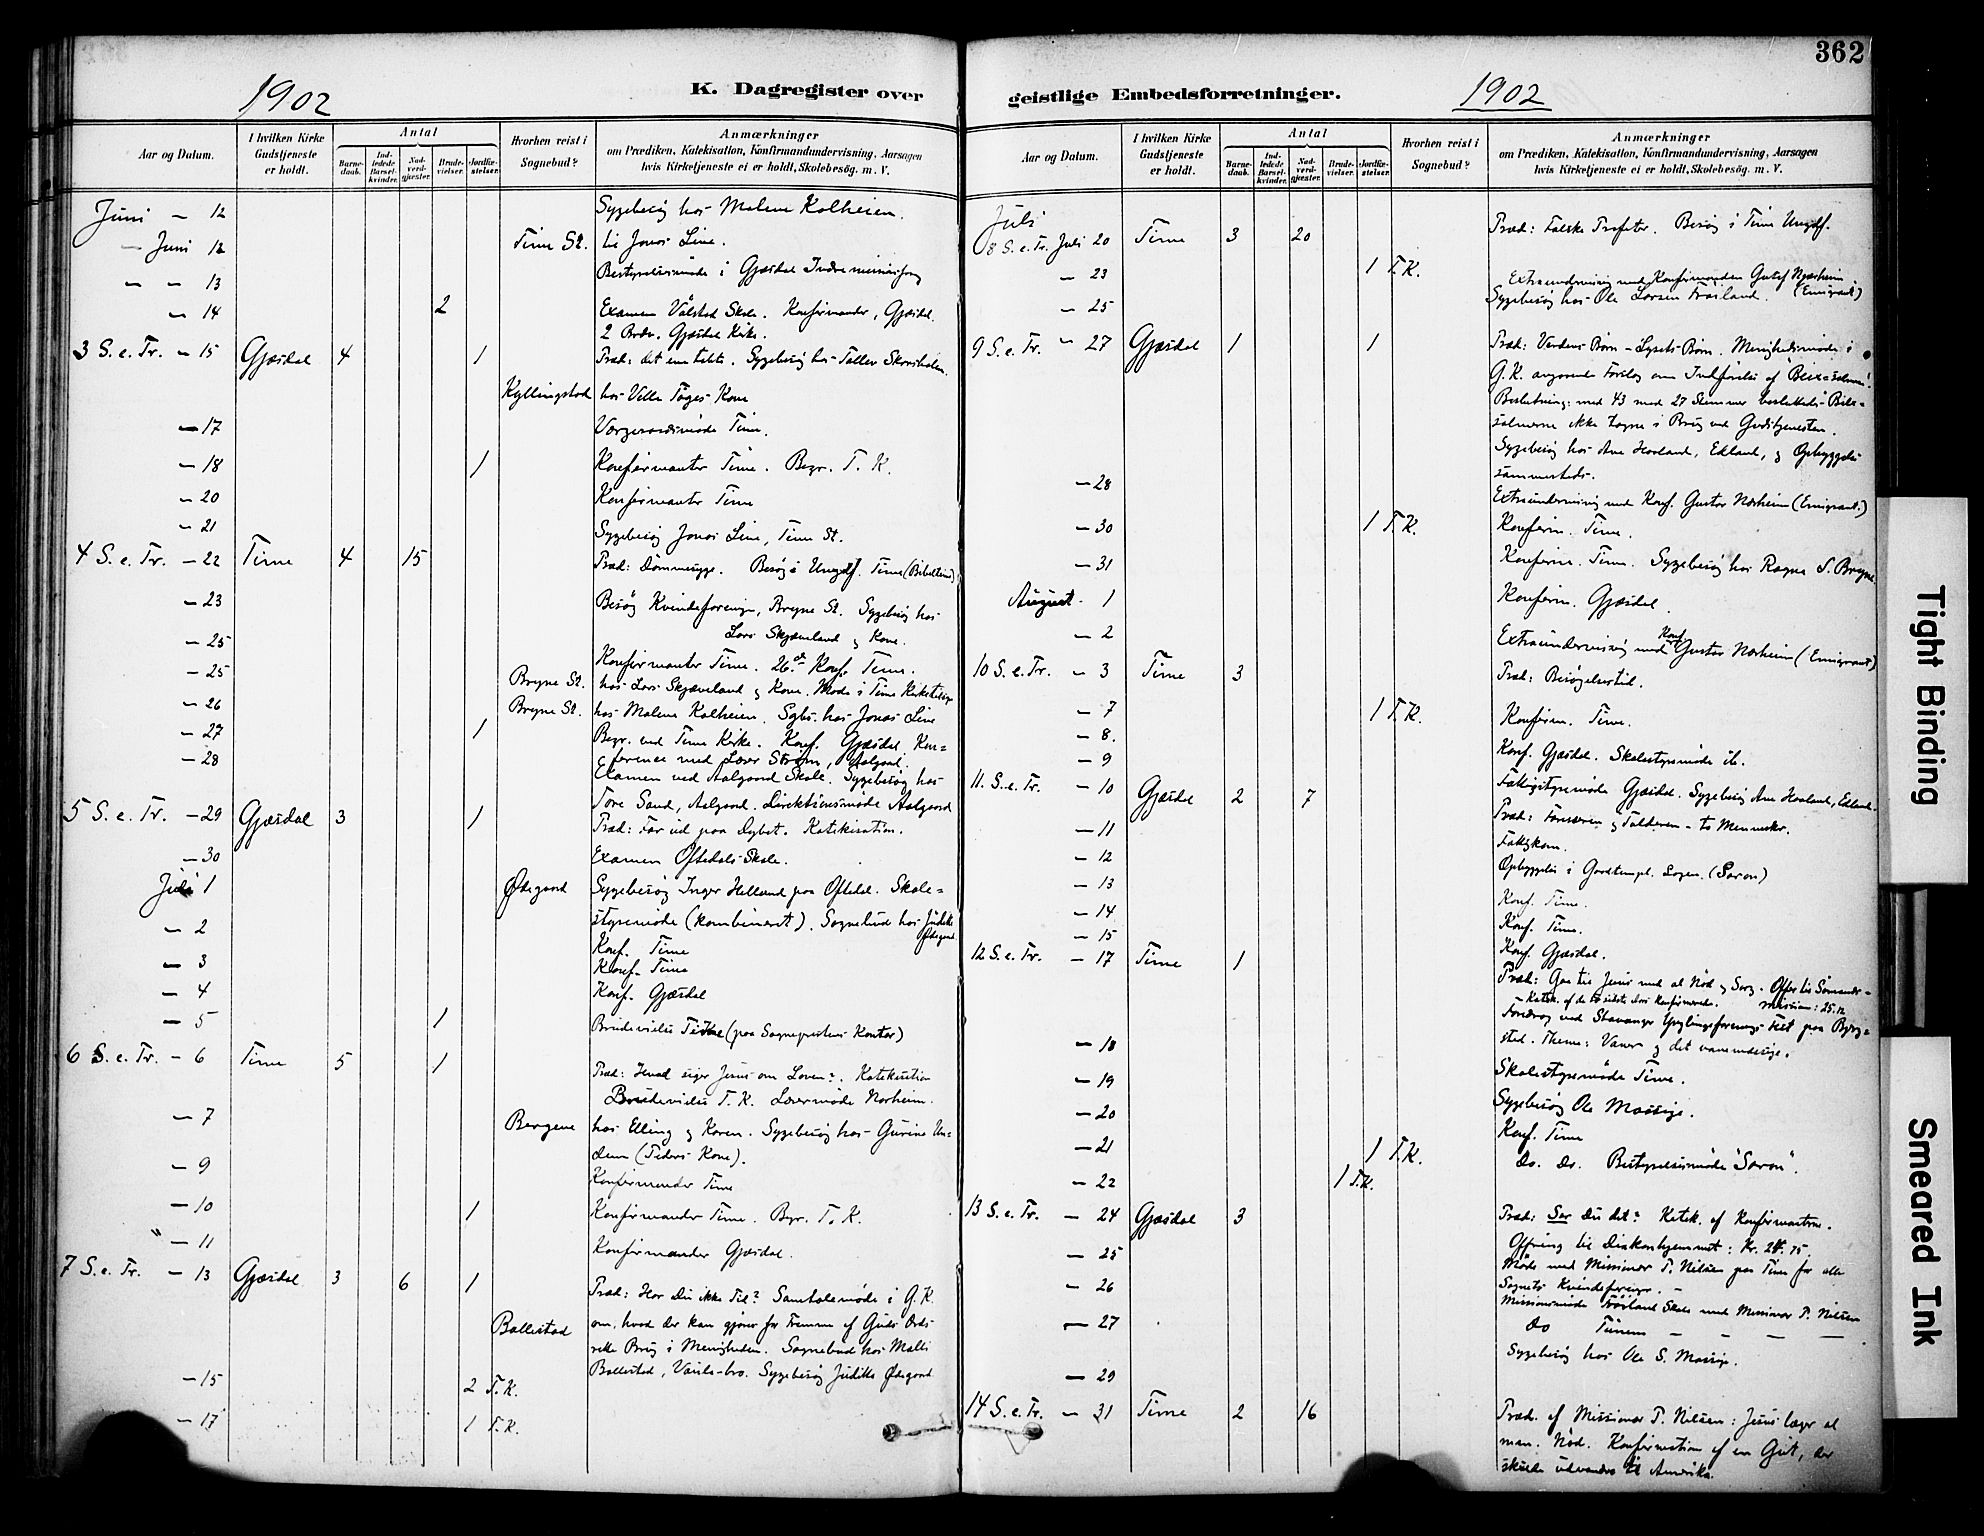 362
1902
K. Dagregister over
Aar og Datum.
I hvilken Kirke Gudstjeneste er holdt.
Antal
Barnedaab.
Indledede Barselkvinder.
Nadverdgjæster.
Brudevielser.
Jordfæstelser.
Hvorhen reist i Sognebud?
Anmærkninger
om Prædiken, Katekisation, Konfirmandundervisning, Aarsagen
hvis Kirketjeneste ei er holdt, Skolebesøg. m. V.
Juni - 12 Sygebesøg hos Malene Kalheien.
- Juni 12 Time St. til Jonas Line.
- - 13 Bestyrelsesmøde i Gjæsdal Indremissionsfor.
- 14 2 Examen Vålstad Skole. Konfirmander, Gjæsdal.
2 Brdv. Gjæsdal Kirke.
3 S. e. Tr. - 15 Gjæsdal 4 1 Præd: det ene tabte. Sygebesøg hos Tollev
Kyllingstad hos Ville Tåges Kone
- 17 Værgeraadsmøde Time.
- 18 1 Konfirmanter Time. Begr. T. K.
- 20 Konfirmanter Time
- 21 Sygebesøg Jonas Line, Time St.
4 S. e. Tr. - 22 Time 4 15 Præd: Dømmesyge. Besøg i Ungdf. Time (Bibeltime)
- 23 Besøg Kvindeforening, Bryne St. Sygebesøg hos
Lars Skjæveland og Kone.
- 25 Konfirmanter Time. 26de Konf. Time.
- 25 Bryne St. hos Lars Skjæveland og Kone. Møde i Time Kirketilsyn
- 26 Bryne St. hos Malene Kalheien. Sgbs. hos Jonas Line
- 27 1 Begr. ved Time Kirke. Konf. Gjæsdal. Kon=
- 28 ference med Lærer Strøm, Aalgaard.
Examen ved Aalgaard Skole. Sygebesøg hos
Tore Sand, Aalgaard. Direktionsmøde Aalgaard
5 S. e. Tr. - 29 Gjæsdal 3 1 Præd: Far ud paa Dybet. Katekisation.
- 30 Examen Oftedals Skole.
Juli 1 Ødegaard Sygebesøg Inger Helland paa Oftedal. Skole=
styremøde (kombineret). Sognebud hos Judithe Ødegaard
- 2 Konf. Time
- 3 Konf. Time
- 4 Konf. Gjæsdal
- 5 1 Brudevielse Time (paa Sognepræstens Kontor)
6 S. e. Tr. - 6 Time 5 1 Præd: Hvad siger Jesus om Loven? Katekisation
Brudevielse T. K. Lærermøde Norheim.
- 7 Bergene hos Elling og Karen. Sygebesøg hos Gurine Un-
dem (Peders Kone).
- 9 Konfirmander Time
- 10 1 Konfirmander Time. Begr. T. K.
" - 11 Konfirmander Gjæsdal.
7 S. e. Tr. - 13 Gjæsdal 3 6 1 Præd: Har du ikke Tid? Samtalemøde i G. K.
Bollestad om, hvad der kan gjøres for Fremme af Guds Ords
rette Brug i Menigheden. Sognebud hos Malli
Bollestad, Vaule-bro. Sygebesøg Judithe Ødegaard
- 15 2 T. K.
- 17 1 T. K.
geistlige Embedsforretninger.
1902
Aar og Datum.
I hvilken Kirke Gudstjeneste er holdt.
Antal
Barnedaab.
Indledede Barselkvinder.
Nadverdgjæster.
Brudevielser.
Jordfæstelser.
Hvorhen reist i Sognebud?
Anmærkninger
om Prædiken, Katekisation, Konfirmandundervisning, Aarsagen
hvis Kirketjeneste ei er holdt, Skolebesøg. m. V.
Juli
8 S. e. Tr. Juli 20 Time 3 20 Præd: Falske Profeter. Besøg i Time Ungdf.
- 23 1 T. K. Extraundervisning med Konfirmanden Gustaf Norheim (Emigrant)
- 25 Sygebesøg hos Ole Larsen Frøiland.
9 S. e. Tr. - 27 Gjæsdal 1 1 Præd: Verdens Børn - Lysets Børn. Menighedsmøde i
G. K. angaaende Forslag om Indførelse af
Beslutning: med 43 mod 27 Stemmer besluttedes
salmerne ikke tagne i Brug ved Gudstjenesten.
Sygebesøg hos Ane Hovland, Edland, og Opbyggelse
- 28 sammesteds.
Extraundervisning med Konf. Gustav Norheim (Emigrant.)
- 30 1 T. K. Konfirm. Time.
- 31 Konfirm. Time. Sygebesøg hos Ragna S. Bryne
August. 1 Konfirm. Gjæsdal.
- 2 Extraundervisning med Konf. Gustav Norheim (Emigrant)
10 S. e. Tr. - 3 Time 3 Præd: Besøgelsestid.
- 7 1 T. K. Konfirm. Time.
- 8. Konf. Gjæsdal. Skolestyremøde ib.
- 9 Fattigstyremøde Gjæsdal. Sygebesøg Ane Hovland, Edland
11. S. e. Tr. - 10 Gjæsdal 2 7 Præd: Farisæeren og Tolderen - to Mennesker.
- 11 Fattigkom.
- 12 Opbyggelse i Goodtempl. Logen. (Saron)
- 13 Konf. Time.
- 14 Konf. Time.
- 15 Konf. Gjæsdal.
12 S. e. Tr. - 17 Time 1 Præd: Gaa til Jesus med al Nød og Sorg. Offer til Sømands=
- Katek. af de to sidste Aars Konfirmerede. missionen: 25.12
Foredrag ved Stavanger Ynglingeforenings Fest paa Bjerg=
- 18 sted. Thema: Vaner og det vanemæssige.
- 19 Skolestyremøde Time.
- 20 Sygebesøg Ole Mossige.
- 21 1 T. K. Konf. Time
- 22 1 T. K. do. do. Bestyrelsesmøde "Saron".
13 S. e. Tr. - 24 Gjæsdal 3 Præd: Ser du det? Katek. af Konfirmanterne.
Offring til Diakonhjemmet: Kr. 24.75.
- 25 Møde med Missionær P. Nilsen paa Time for alle
Sognets Kvindeforeninger. -
- 26 Missionsmøde Frøiland Skole med Missionær P. Nilsen
- 27 do Tunem - - - -
- 29 Sygebesøg hos Ole S. Mossige.
14 S. e. Tr. - 31 Time 2 16 Præd. af Missionær P. Nilsen: Jesus læger al
men. Nød. Konfirmation af en Gut, der
skulde udvandre til Amerika.
Tight Binding
Smeared Ink